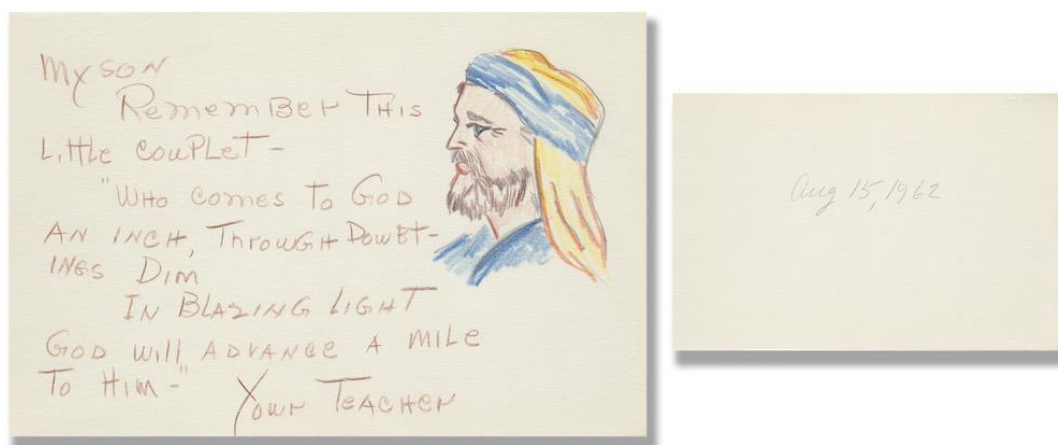 My SON
Remember This
Little Couplet-
"Who comes To God
AN INCH, Through Doubt-
INGS Dim
IN BLAZING LIGHT
GOD Will ADVANCE A MILE
To Him-"
Your TEACHER
Aug 15, 1962